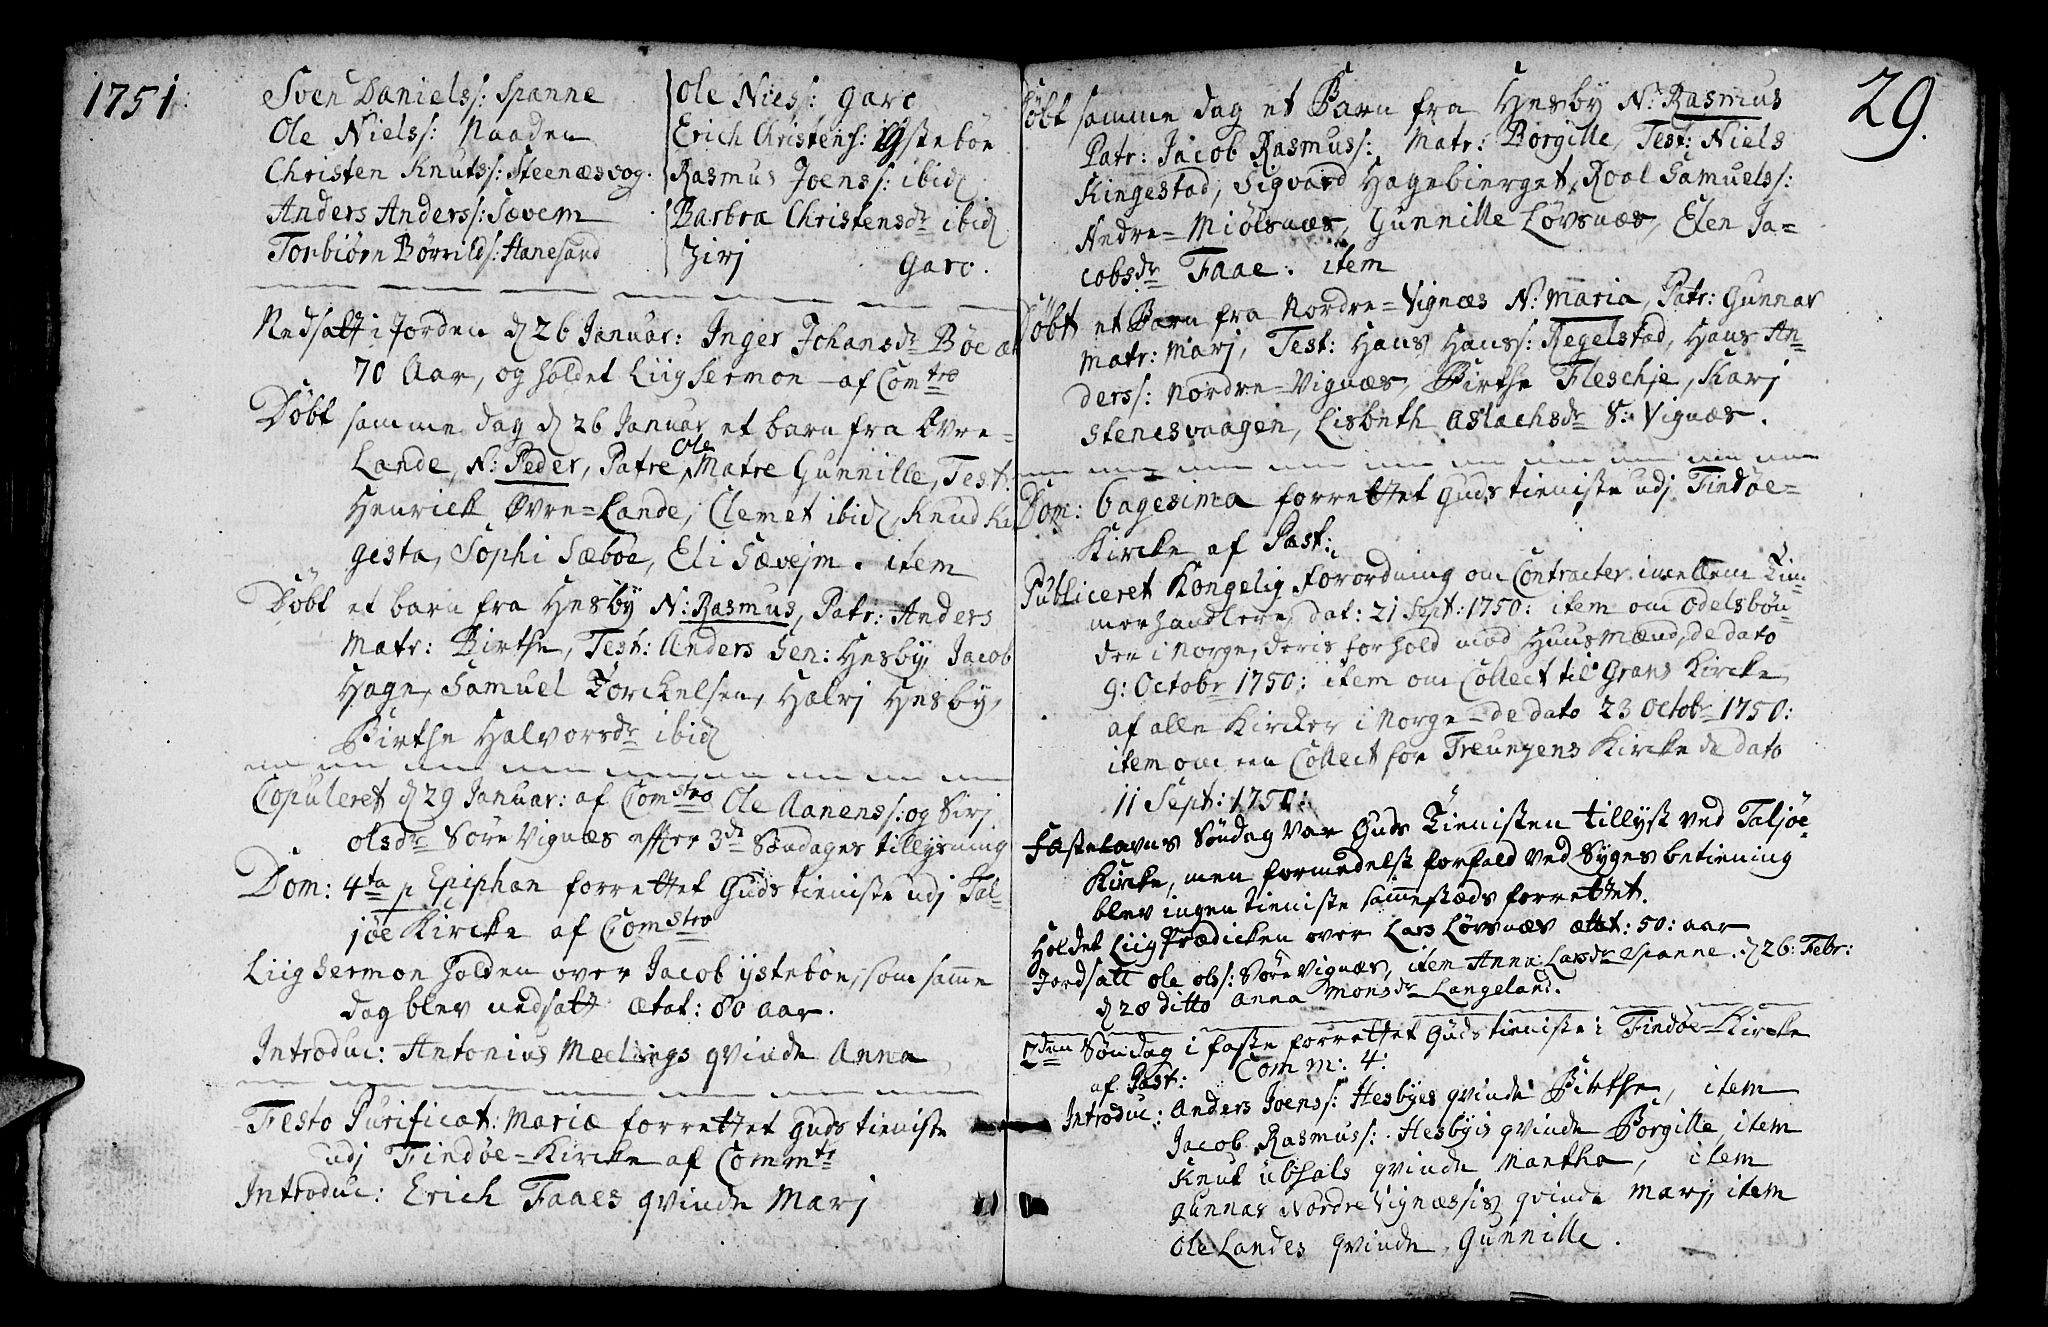 1751
Sven Daniels: Spanne
Ole Niels: Naaden
Christen Knuts: Steenæsvog.
Anders Anders: Sævem
Torbiörn Börrilds: Hanesand
Ole Nies: garo
Erich Christens: Ystebön
Rasmus Joens: ibid
Barbra Christensdr ibid
Zirj garo.
Nedsatt i Jorden d 26 Januar: Inger Johansdr Böe æt
70 Aar, og holdet Liig Sermon af Comtro
Döbt samme dag d 26 Januar et barn fra Övre-
Lande, N: Peder, Patre Ole, Matre Gunnille, Test:
Henrick Övre-Lande, Clemet ibid, Knud Ki
gesta, Sophi Sæböe, Eli Sævejm. item
Döbt et barn fra Hesby N: Rasmus, Patr: Anders
Matr: Birthe, Test: Anders Sen: Hesby, Jacob
Hage, Samuel Torckelsen, Halrj Hesby,
Birthe Halvorsdr ibid
Copuleret d 29 Januar: af Comstro Ole Aanens: og Sirj
olsdr Söre Vignæs effter 3de Söndages tillysning
Dom: 4ta p Epiphan forrettet Guds tieniste udj Tal-
jöe Kircke af Comstro
Liig Sermon holden over Jacob Ystebön, som samme
dag blev nedsatt ætat: 80 aar.
Introduc: Antonius Meelings qvinde Anna
Festo Purificat: Mariæ forrettet guds tieniste
udj Findöe-Kircke af Commtr
Introduc: Erich Faaes qvinde Marj
29.
Döbt samme dag et Barn fra Hesby N: Rasmus
Patr: Jacob Rasmus: Matr: Borgille, Test: Niels
Kingestad, Sigvard Hagebierget, Roal Samuels:
Andre-Miölsnæs, Gunnille Lövsnæs, Elen Ja-
cobsdr Faae. item
Döbt et Barn fra Nordre-Vignæs N: Maria, Patr: Gunnar
Matr: Marj, Test: Hans Hans: Regelstad, Hans An-
ders: Nordre-Vignæs, Birthe Fleschje, Skarj
Stenesvaagen, Lisbeth Aslachsdr S: Vignæs.
Dom: 6agesima forrettet Guds tieniste udj Findöe-
Kircke af Past:
Publiceret Kongelig Forordning om Contracter imellem Tim-
merhandlere, dat: 21 Sept: 1750: item om Odelsbön-
der i Norge, deris forhold mod Huusmænd, de dato
9: Octobr 1750: item om Collect til Grans Kircke
af alle Kircker i Norge de dato 23 Octobr 1750:
item om en Collect for Treungens Kircke de dato
11 Sept: 1750:
Fastelavns Söndag var Guds Tienisten tillyst ved Taljöe-
Kircke, men formedelst forfald ved Syges betiening
blev ingen tieniste sammestæds forrettet.
Holdet Liig Prædicken over Lars Lövsnæs ættt: 50: aar
Jordsatt ole ols: Söre Vignæs, item Anna Larsdr Spanne. d 26: Febr:
d 28 ditto Anna Monsdr Langeland.
2den Söndag i faste forrettet Guds tieniste i Findöe-Kircke
af Past: Comm: 4:
Introduc: Anders Joens: Hesbyes qvinde Birthe, item
Jacob Rasmus: Hesbyis qvinde Borgille, item
Knut ubsals qvinde Martha, item
gunnar Nordre Vignæssis qvinde Marj, item
Ole Landes qvinde Gunnille.